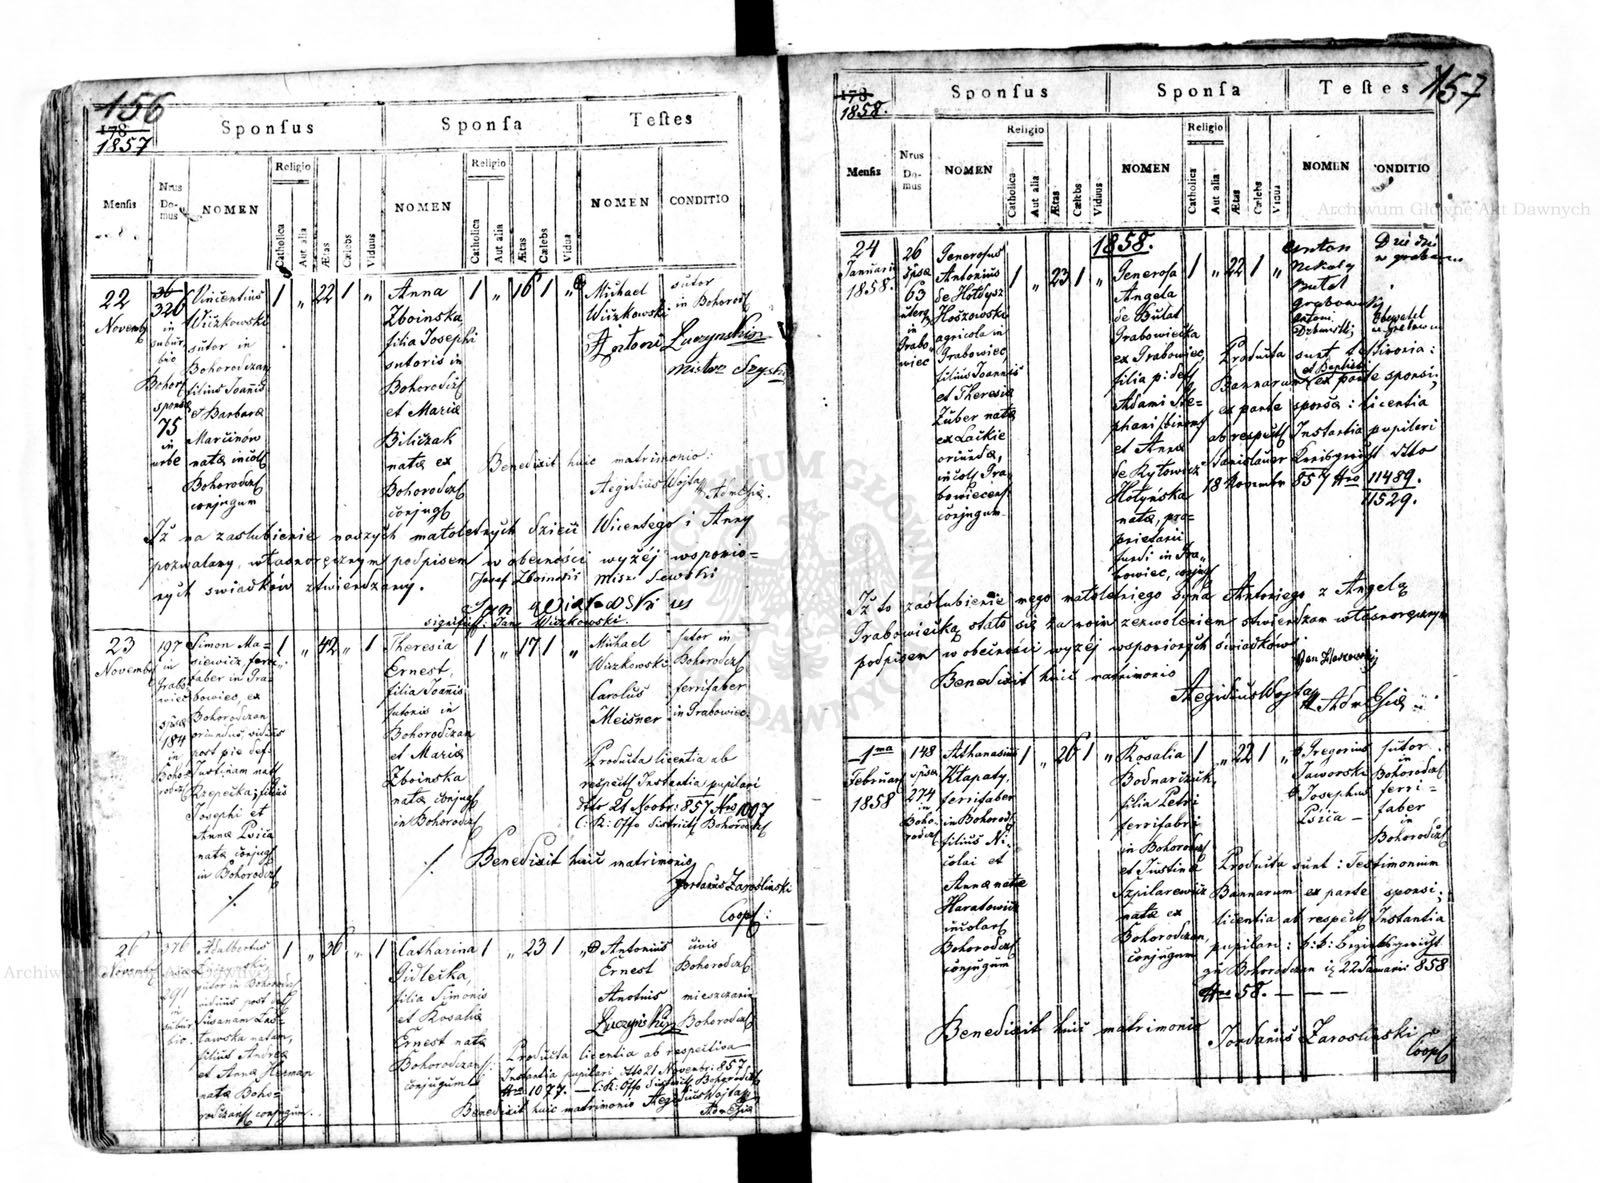 156
178
1857
Sponsus
Sponsa
Testes
Mensis
Nrus Domus
NOMEN
Religio
Catholica
Aut alia
Ætas
Cælebs
Viduus
NOMEN
Religio
Catholica
Aut alia
Ætas
Cælebs
Vidua
NOMEN
CONDITIO
22
Novemb
36
320
in
subur
bio
Bohor
sponsæ
75
in
urbe
Vincentius
Wiczkowski
sutor in
Bohorodczan
filius Joannis
et Barbaræ
Marcinów
natæ incol
Bohorodcz
conjugum
1 „ 22 1 „
Anna
Zboinska
filia Josephi
sutoris in
Bohorodcz
et Mariæ
Biliczak
natæ ex
Bohorodcz
conjug
1 „ 16 1 „
Michael
Wiczkowski
sutor
in Bohorod
Antoni Luczynskin
Benedixit huic matrimonio:
Aegidius Wojtap
Adm Eccl.
Iż na zaślubienie naszych małoletnych dzieci Wicentego i Anny
pozwalamy, własnoręcznym podpisem w obecności wyżéj wspomio=
nych swiadków ztwierdzamy.
Josef Zboinski
23
Novemb
197
in
Grabo
wiec
spsæ
184
in
Boho
rodcz
Simon Ma=
siewicz ferri
faber in Gra=
bowiec, ex
Bohorodczan
oriundus, viduus
post pie def
Justinam nat
Rzepecka; filius
Josephi et
Anna Psica
natæ conjug
in Bohorodcz
1 „ 42 „ 1
Theresia
Ernest,
filia Joannis
sutoris in
Bohorodczan
et Mariæ
Zboinska
natæ conjug
in Bohorodcz
1 „ 17 1 „
Michael
Wiczkowski
Carolus
Meisner
sutor in
Bohorodcz
ferrifaber
in Grabowiec
Producta licentia ab
respect Instantia pupilari
dtto 21 Novbr: 857 Nro 1007
C: K: Offo District Bohorodcz
Benedixit huic matrimonio
Jordanus Zaroslinski
Coop:
26
Novemb
376
spsæ
291
in
subur
bio
Adalbertus
sutor in Bohorodcz
viduus post def
Susanam Las=
tawska natam,
filius Andreæ
et Anna Herman
natæ Boho=
rodczan conjugum.
1 „ 36 „ 1
Catharina
Gidlecka,
filia Simonis
et Rosaliæ
Ernest natæ
Bohorodczan
conjugum
1 „ 23 1 „
Antonius
Ernest
civis
Bohorodcz
Antonis
Luczynskin
mieszczanin
Bohorodcz
Producta licentia ab respectiva
Instantia pupilari dtto 21 Novembr: 857
Nro 1077. — C: K: Offo District Bohorodcz
Benedixit huic matrimonio Aegidius Wojtap
Adm Eccl
157
178
1858.
Sponsus
Sponsa
Testes
Mensis
Nrus Domus
NOMEN
Religio
Catholica
Aut alia
Ætas
Cælebs
Viduus
NOMEN
Religio
Catholica
Aut alia
Ætas
Cælebs
Vidua
NOMEN
CONDITIO
1858.
24
Januarii
1858.
26
spsæ
63
uterq
in
Grabo
wiec
Generosus
Antonius
de Hołdysz
Hoszowski
agricola in
Grabowiec,
filius Joannis
et Theresia
Zuber natæ
ex Lackie
oriundæ,
incol Gra=
bowiecens
conjugum
1 „ 23 1 „
Generosa
Angela
de Butat
Grabowiecka
ex Grabowiec,
filia pi def
Adami Ste=
phani binom
et Anna
de Rytowicz
Hotyńska
natæ, pro=
prietarii
fundi in Gra=
bowiec, conjug
1 „ 22 1 „
Anton
Nikolaj
Butat
Grabowiecki
Antoni
Obywatel
Producta sunt testimonia:
Bannarum et Baptism ex parte sponsi;
ex parte sponsæ: licentia
ab respect Instantia pupilari
Stanislauer Kreisgericht dtto
18 Novembr 857 Nro 11489.
11529.
Iż to zaślubienie mego małoletniego syna Antoniego z Angelą
Grabowiecką stało się za moim zezwoleniem stwierdzam własnoręcznym
podpisem w obecności wyżéj wspomionych świadków
Jan Hoszowski
Benedixit huic matrimonio
Aegidius Wojtap
Adm Eccl
1ma
Februar
1858
148
spsæ
274
in
Boho
rodcz
Athanasius
Kłapaty,
ferrifaber
in Bohorod
filius Ni=
colai et
Anna natæ
Haratowicz
incolar
Bohorodcz
conjugum
1 „ 26 1 „
Rosalia
Bodnarczuk,
filia Petri
ferrifabri
in Bohorodcz
et Justina
Szpilarewicz
natæ ex
Bohorodczan
conjugum
1 „ 22 1 „
Gregorius
Jaworski
Josephus
Psica —
sutor
in
Bohorodcz
ferri=
faber
in
Bohorodcz
Producta sunt: Testimonium
Bannarum ex parte sponsi;
licentia ab respect Instantia
pupilari: k: k: Bezirksgericht
zu Bohorodczan 22 Januarii 858
Nro 58. — — —
Benedixit huic matrimonio
Jordanus Zaroslinski
Coop
Archiwum Główne Akt Dawnych
Archiwum Główne Akt Dawnych
ARCHIWUM GŁÓWNE AKT DAWNYCH